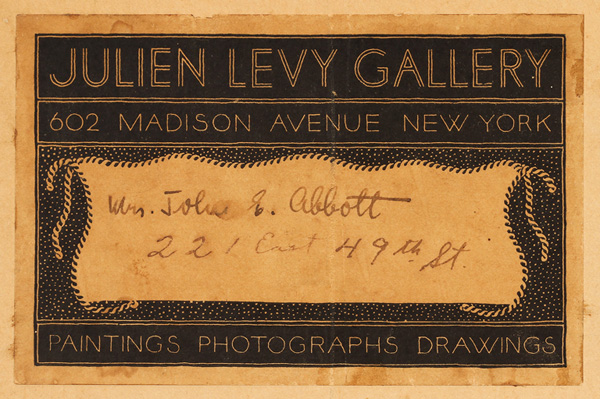 JULIEN LEVY GALLERY
602 MADISON AVENUE NEW YORK
Mrs. John E. Abbott
221 East 49th St.
PAINTINGS PHOTOGRAPHS DRAWINGS